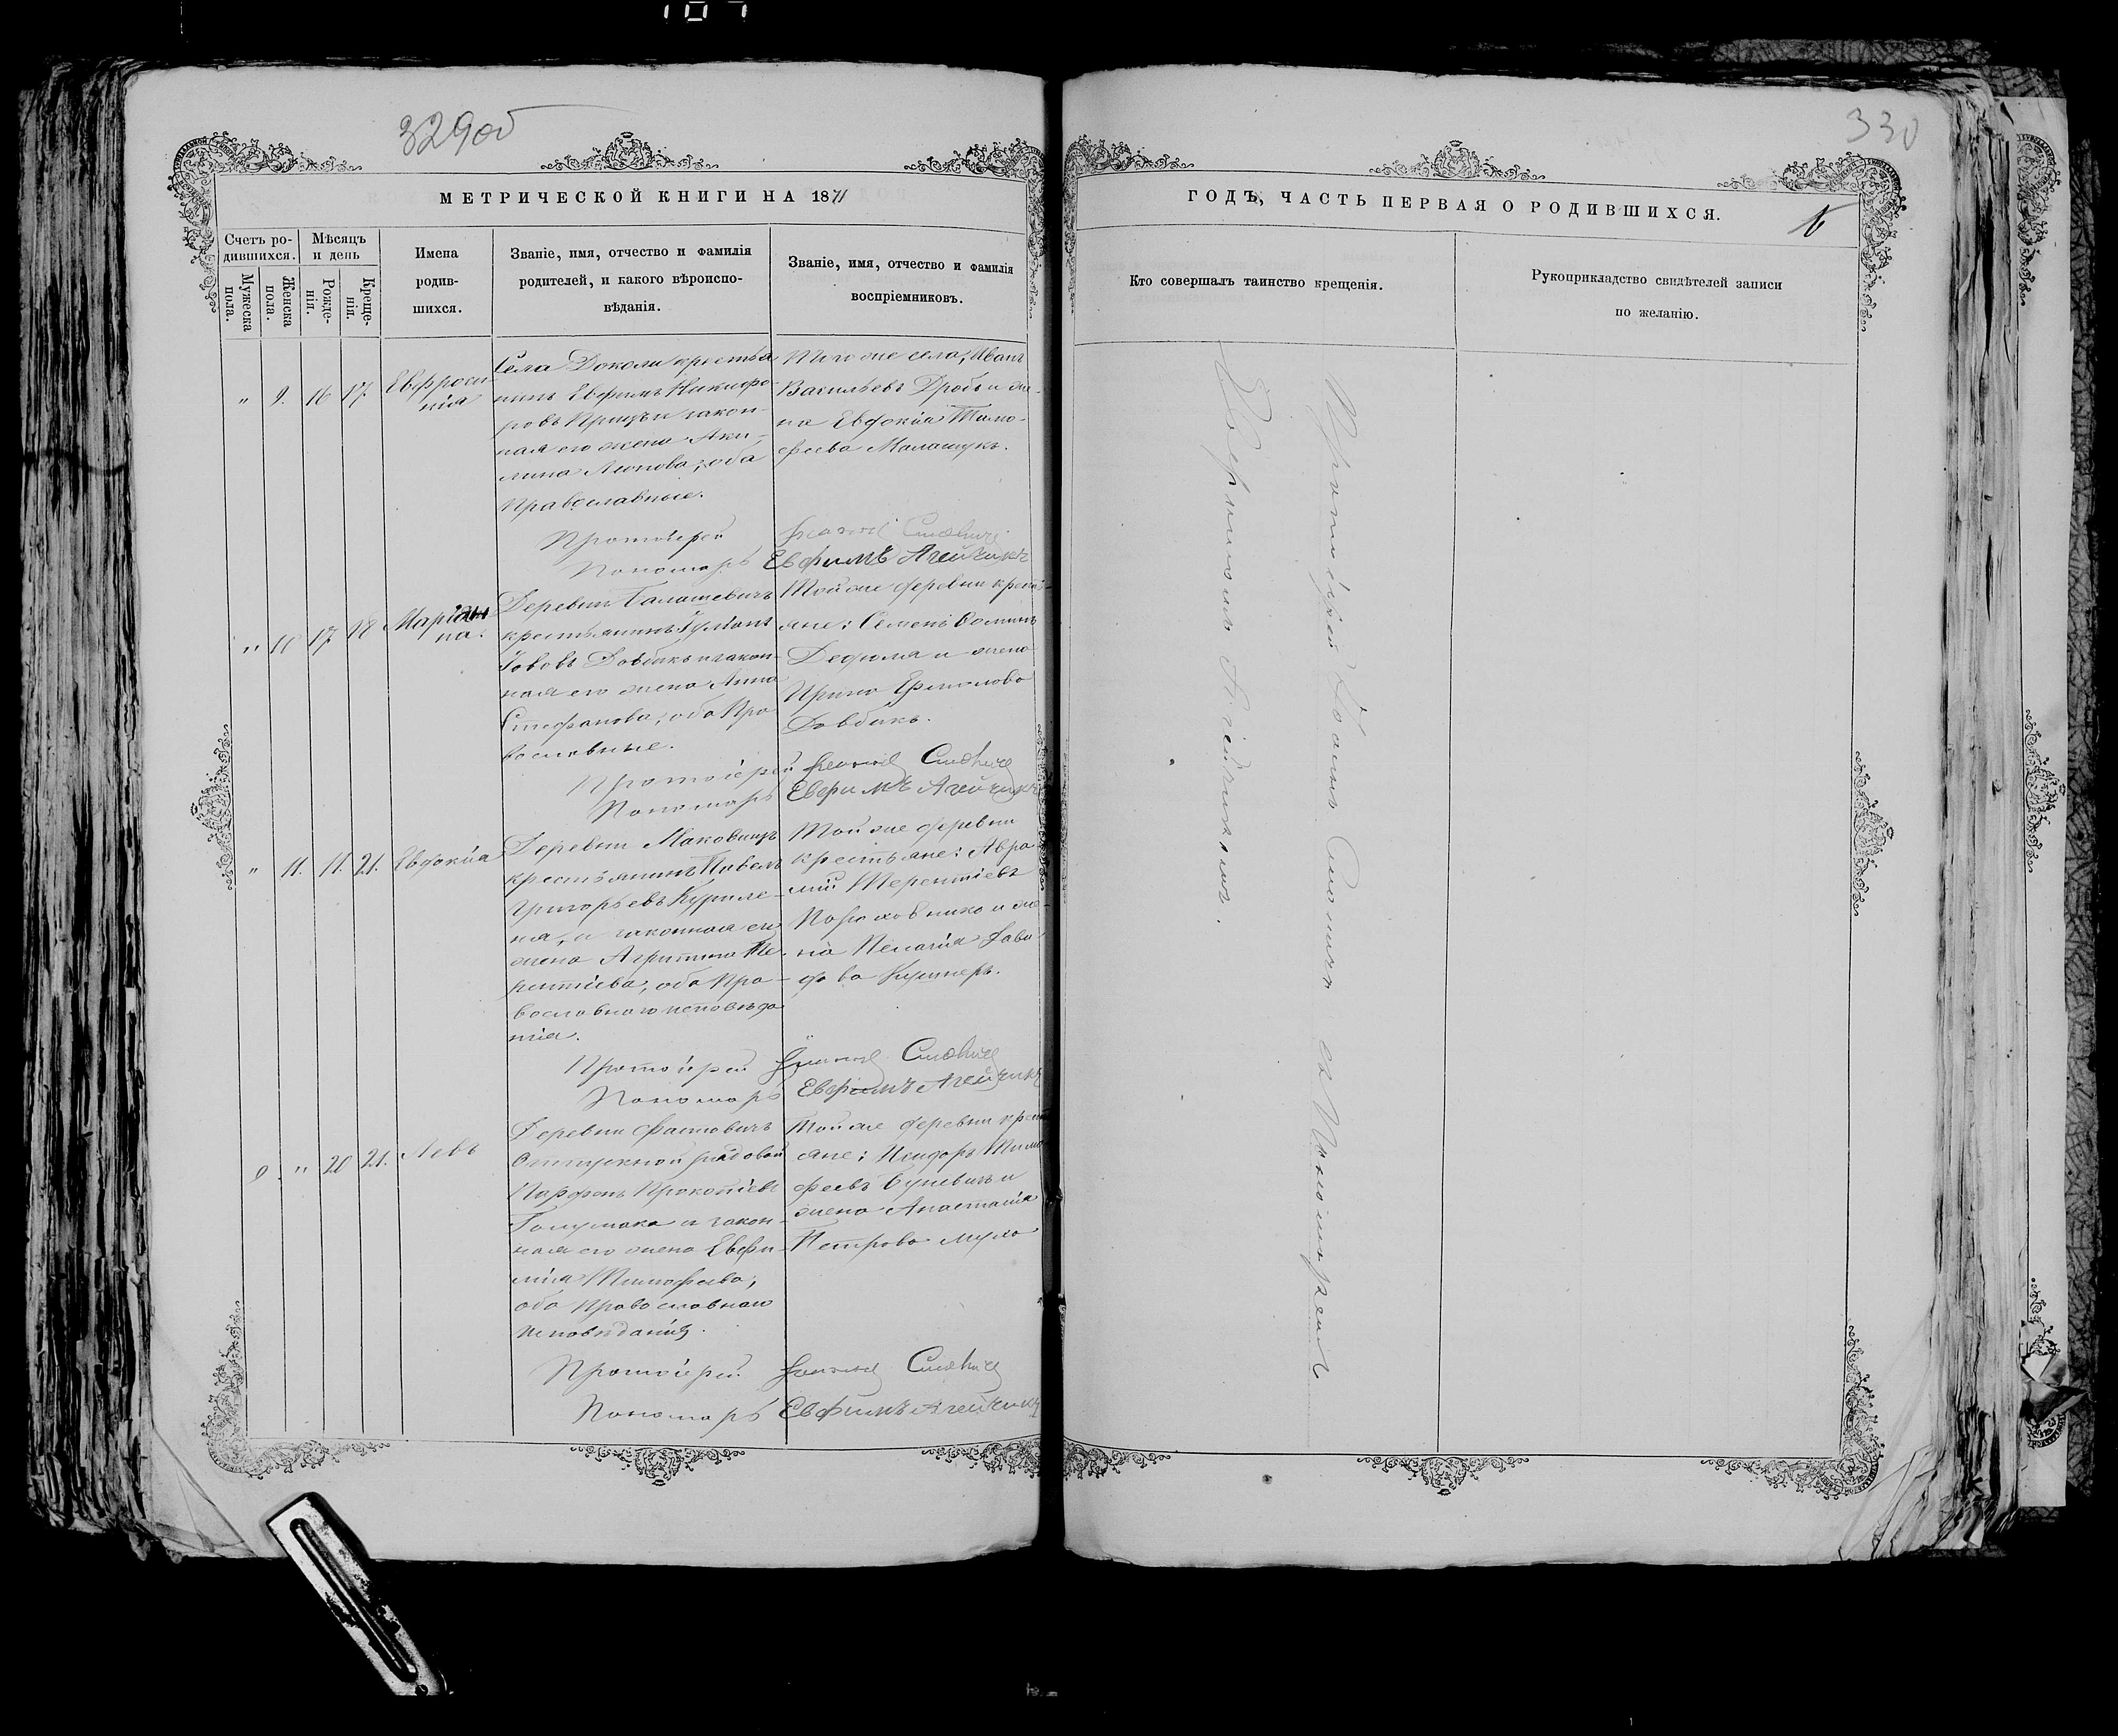 329 об
МЕТРИЧЕСКОЙ КНИГИ НА 1871
Счетъ ро-
дившихся.
Мѣсяцъ
и день
Мужеска
пола.
Женска
пола.
Рожде-
нія.
Креще-
нія.
Имена
родив-
шихся.
Званіе, имя, отчество и фамилія
родителей, и какого вѣроиспо-
вѣданія.
Званіе, имя, отчество и фамилія
воспріемниковъ.
" 9. 16 17.
Евфроси
нія
Села Доколи крестья
нинъ Евфимъ Никифо-
ровъ и закон-
ная его жена Аки-
лина; оба
Православные.
Того же села, Иванъ
Васильевъ Дробъ и же-
на Евдокія Тимо-
феева Малащукъ.
Протоіерей
Пономарь Евфимъ Агейчикъ
" 10 17 18
Маріан
на.
Деревни Балашевичъ
крестьянинъ
Іововъ Довбикъ и закон-
ная его жена Анна
Стефанова, оба Пра-
вославные.
Той же деревни кресть-
яне: Семенъ Фоминъ
и жена
Ирина Ермолова
Довбикъ.
Протоіерей
Пономарь Евфимъ Агейчикъ
" 11. 11. 21.
Евдокія
Деревни Маковищъ
крестьянинъ Павелъ
Григорьевъ Куриле-
ня, и законная его
жена Агрипина Те-
рентіева, оба Пра-
вославнаго исповѣда
нія.
Той же деревни
крестьяне: Авра-
мій Терентіевъ
и же-
на Пелагія Сави-
Кушнеръ.
Протоіерей
Пономарь Евфимъ Агейчикъ
9 " 20 21.
Левъ
Деревни Фастовичъ
Отпускной рядовой
Парфенъ Прокопіевъ
и закон-
ная его жена Евфи-
мія Тимофеева,
оба Православнаго
исповѣданія.
Той же деревни крест
яне: Исидоръ Тимо
феевъ Буневичъ и
жена Анастасія
Петрова Муха
Протоіерей
Пономарь Евфимъ Агейчикъ
330
ГОДЪ, ЧАСТЬ ПЕРВАЯ О РОДИВШИХСЯ.
Кто совершалъ таинство крещенія.
Рукоприкладство свидѣтелей записи
по желанію.
Протоіерей Іоаннъ съ Пономаремъ
Евфимомъ Агейчикомъ.